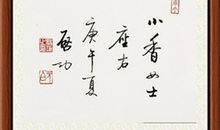 小香女士
座右
庚午夏
啟功